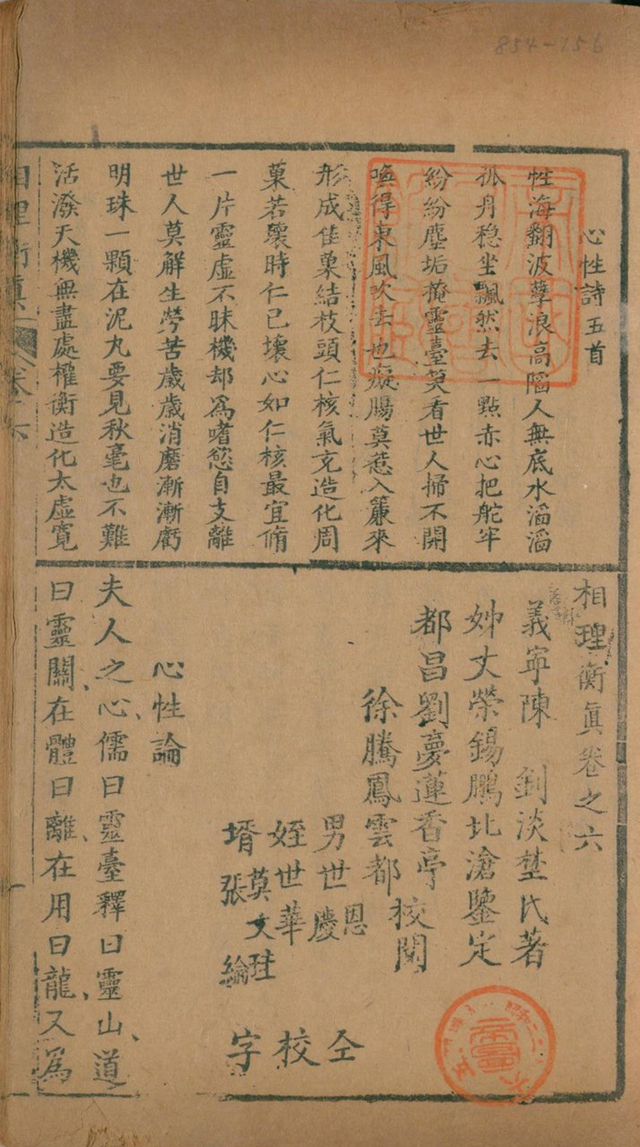 854-156
心性詩五首
性海翻波孽浪高陷人無底水滔滔
孤舟稳坐飄然去一點赤心把舵牢
紛紛塵垢掩靈臺笑看世人掃不開
喚得東風吹去也癡腸莫惹入簾來
形成佳果結枝頭仁核氣充造化周
菓若壞時仁已壞心如仁核最宜脩
一片靈虛不昧機却為嗜慾自支離
世人莫解生勞苦歲歲消磨漸漸虧
明珠一顆在泥丸要見秋毫也不難
活潑天機無盡處權衡造化太虛寬
相理衡真
相理衡眞卷之六
義寧陳 釗淡埜氏著
姊丈榮錫鵬北滄鑒定
都昌劉夢蓮香亭
徐騰鳳雲都 校閱
男世恩慶
姪世華
壻莫文珪
張 綸
仝校字
心性論
夫人之心儒曰靈臺釋曰靈山道
曰靈關在體曰離在用曰龍又為